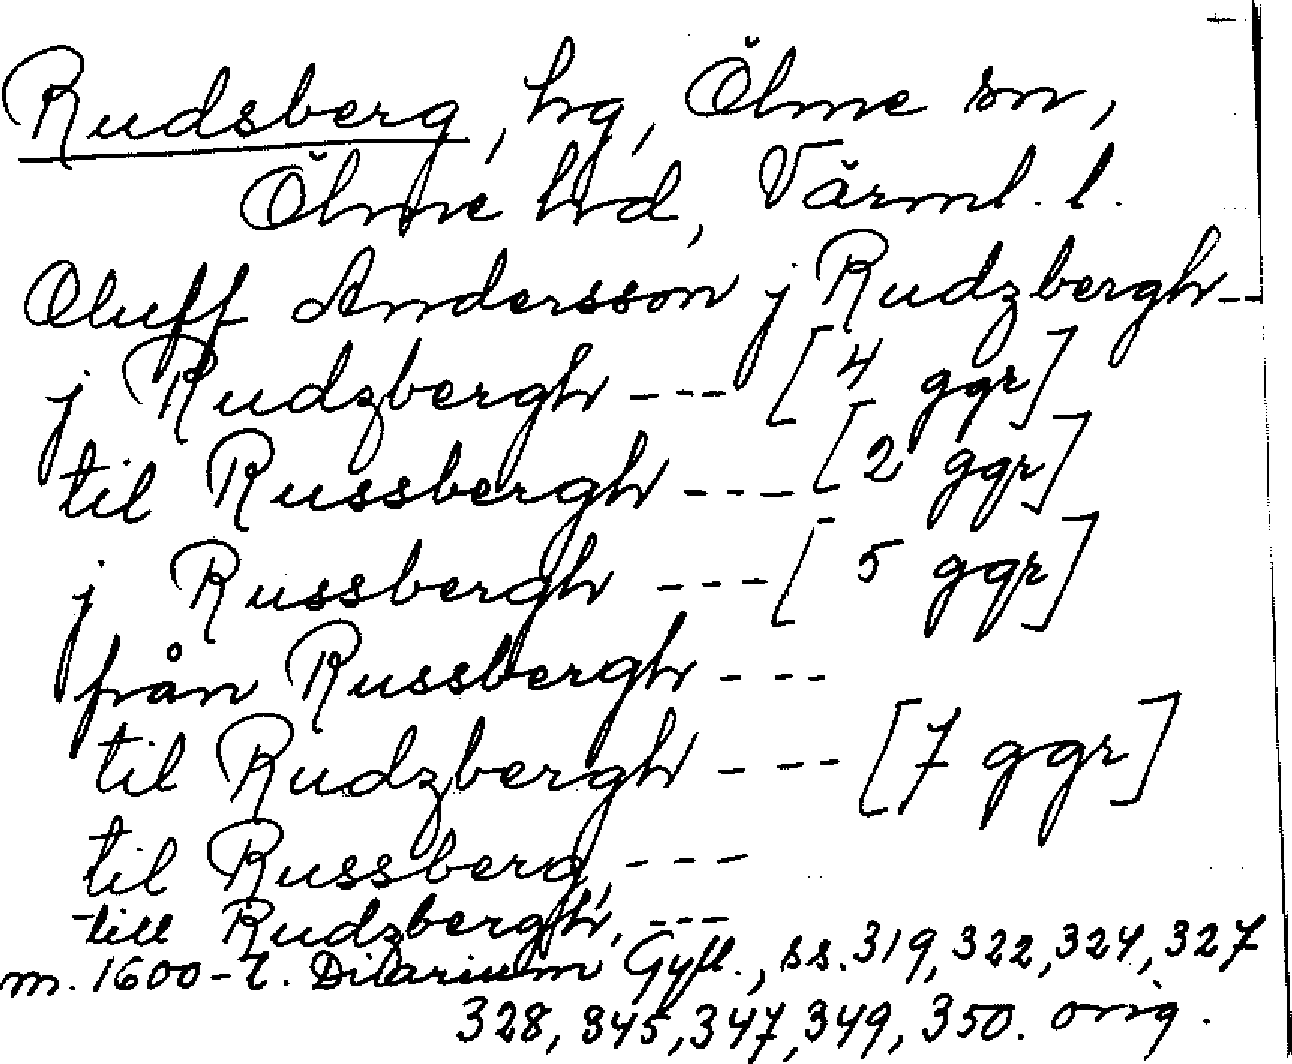 Rudsberg, hg, Ölme sn,
Ölme hd, Värml. l.
Oluff Andersson j Rudzbergh--
j Rudzbergh --- [4 ggr]
til Russbergh --- [2 ggr]
j Russbergh --- [5 ggr]
från Russbergh ---
til Rudzbergh --- [7 ggr]
til Russberg, ---
till Rudzbergh, ---
m. 1600-t. Diarium Gyll., ss. 319, 322, 324, 327
328, 345, 347, 349, 350. orig.